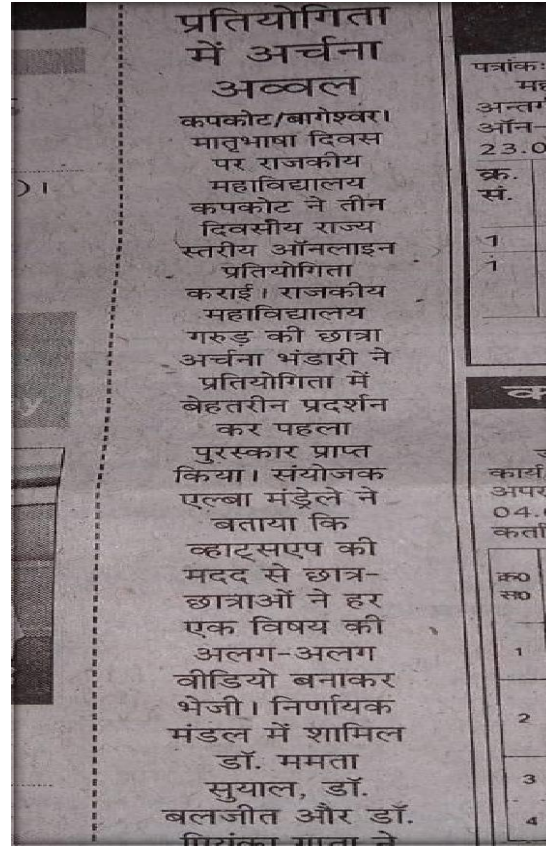 प्रतियोगिता
में अर्चना
अव्वल
कपकोट/बागेश्वर।
मातृभाषा दिवस
पर राजकीय
महाविद्यालय
कपकोट ने तीन
दिवसीय राज्य
स्तरीय ऑनलाइन
प्रतियोगिता
कराई। राजकीय
महाविद्यालय
गरुड़ की छात्रा
अर्चना भंडारी ने
प्रतियोगिता में
बेहतरीन प्रदर्शन
कर पहला
पुरस्कार प्राप्त
किया। संयोजक
एल्बा मंड्रेले ने
बताया कि
व्हाट्सएप की
मदद से छात्र-
छात्राओं ने हर
एक विषय की
अलग-अलग
वीडियो बनाकर
भेजी। निर्णायक
मंडल में शामिल
डॉ. ममता
सुयाल, डॉ.
बलजीत और डॉ.
पत्रांक:
अन्तर्ग
ऑन-
23.0
क्र.
सं.
1
1
कार्य
अपर
04.
क्र0
सं0
1
2
3
4